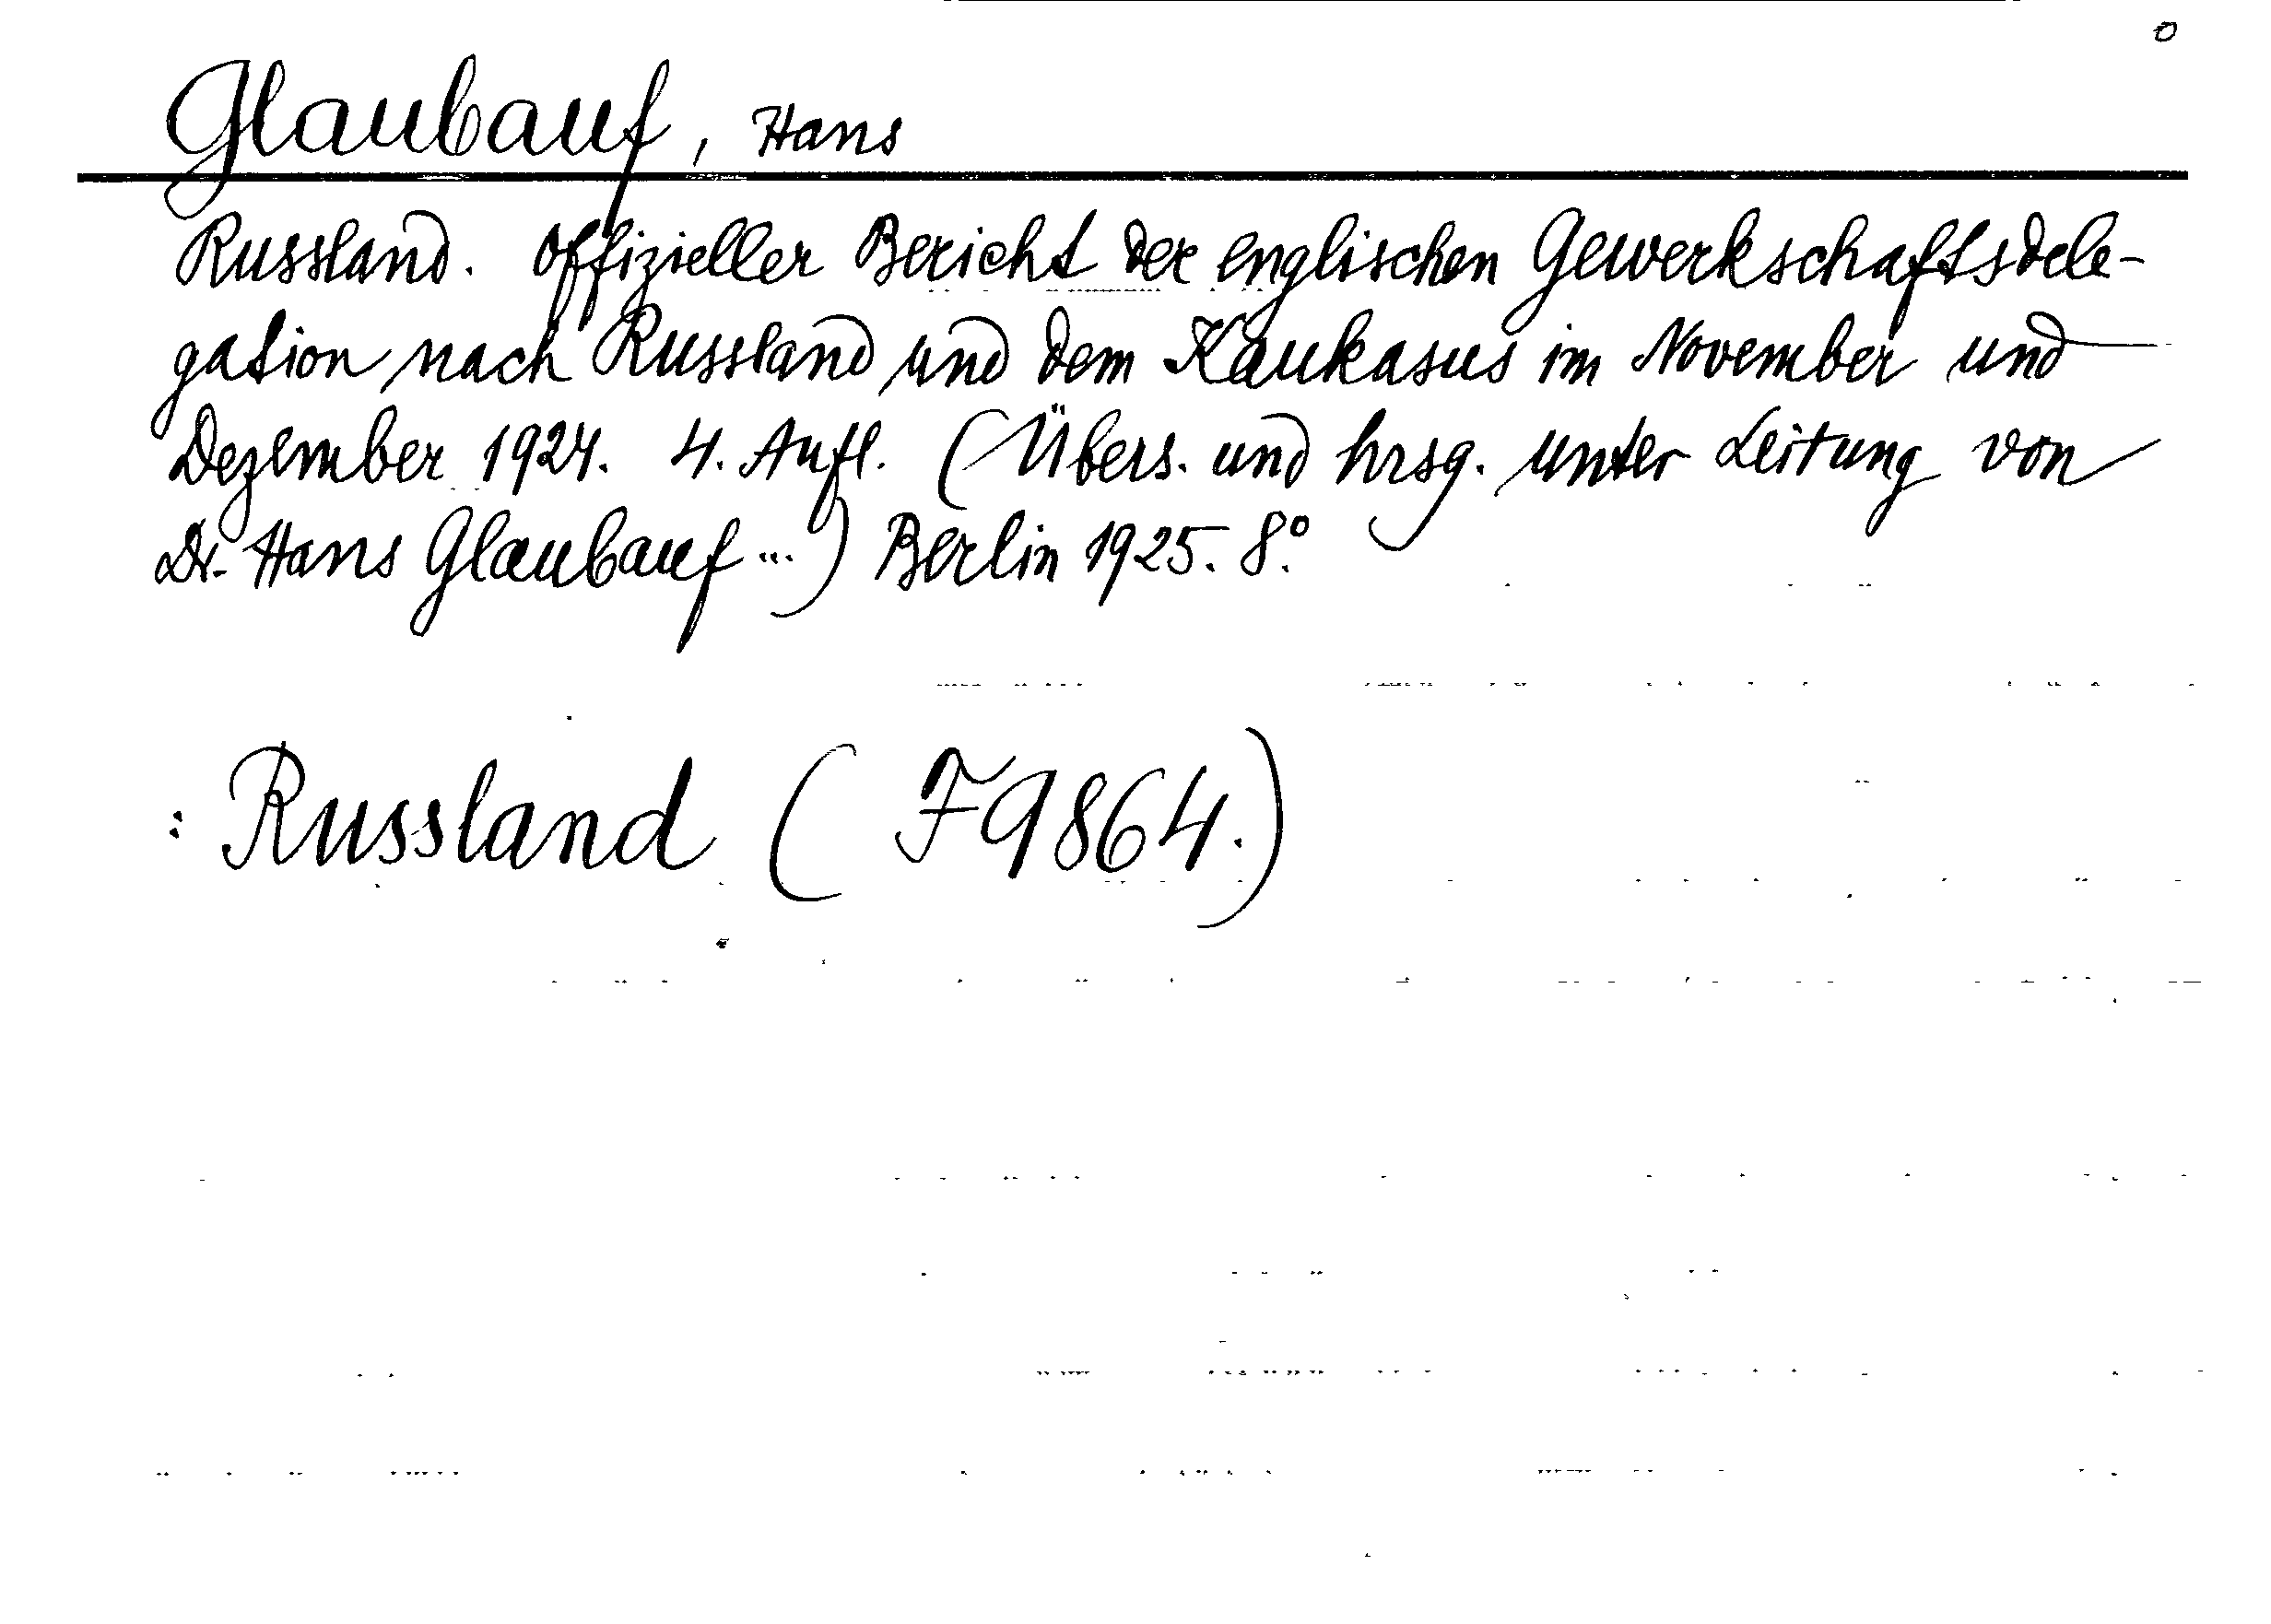 o
Glaubauf, Hans
Russland. Offizieller Bericht der englischen Gewerkschaftsdele-
gation nach Russland und dem Kaukasus im November und
Dezember 1924. 4. Aufl. (Übers. und hrsg. unter Leitung von
Dr. Hans Glaubauf ...) Berlin 1925. 8.°
: Russland ( F9864.)